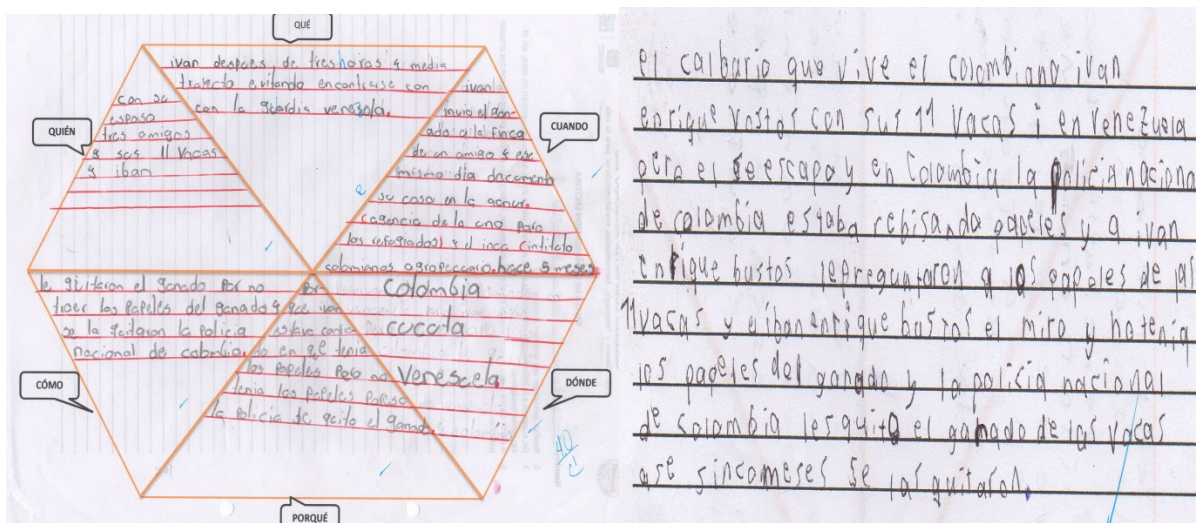 QUÉ
ivan despues de tres horas y media
trayecto evitando encontrarse con
con la guardia venezola.
QUIÉN
con su
esposo
tres amigos
y sus 11 vacas
y iban
CUANDO
ivan
invio el gan-
ado a la finca
de un amigo y ese
mismo dia documento
su caso en la
cagencia de la onu para
los refogiados) y el inca (intituto
colomianos agropecuario. hace 5 meses
CÓMO
le quitaron el ganado por no
traer los papeles del ganado y que ivan
se la quitaron la policia
nacional de
PORQUÉ
por
estava
no en qe tenia
los papeles
tenia los papeles
la policia le quito el ganado.
DÓNDE
Colombia
cucota
Venescela
el calbario que vive el colombiano ivan
enrique vostos con sus 11 vacas i en venezuela
pero el se escapo y en Colombia la policia naciona
de colombia estaba rebisando papeles y a ivan
enrique bustos lepreguntaron a los papeles de las
11 vacas y eiban enrique bustos el miro y notenia
los papeles del ganado y la policia nacional
de colombia lesquito el ganado de las vacas
ase sincomeses se las quitaron.